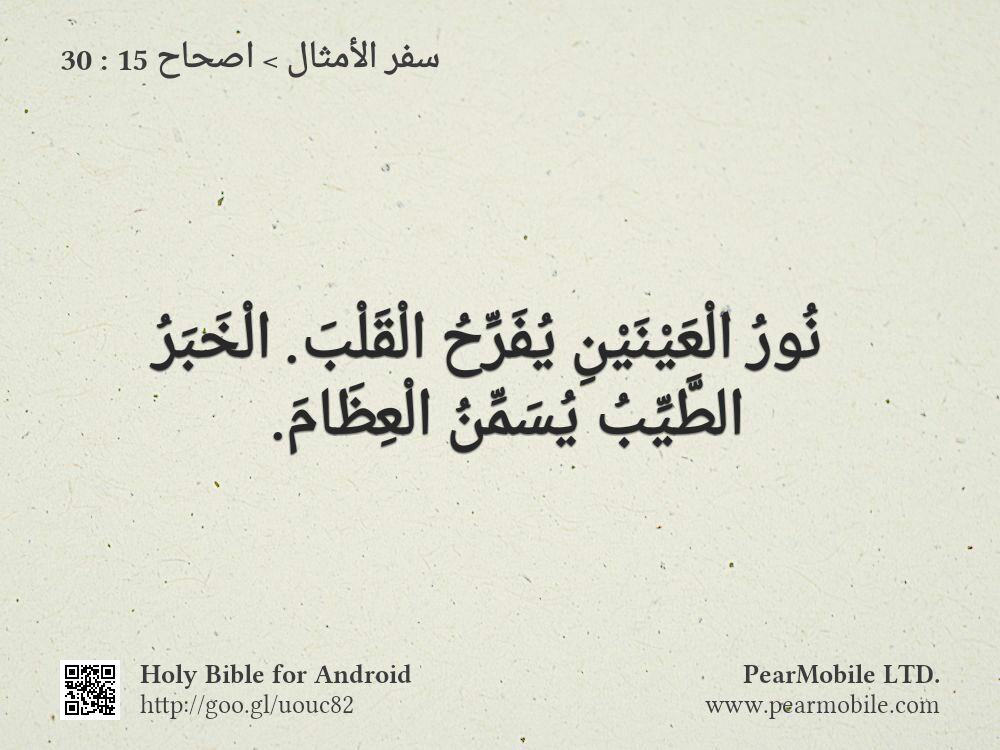 سفر الأمثال > اصحاح 15 : 30
نُورُ الْعَيْنَيْنِ يُفَرِّحُ الْقَلْبَ. الْخَبَرُ
الطَّيِّبُ يُسَمِّنُ الْعِظَامَ.
Holy Bible for Android
http://goo.gl/uouc82
PearMobile LTD.
www.pearmobile.com